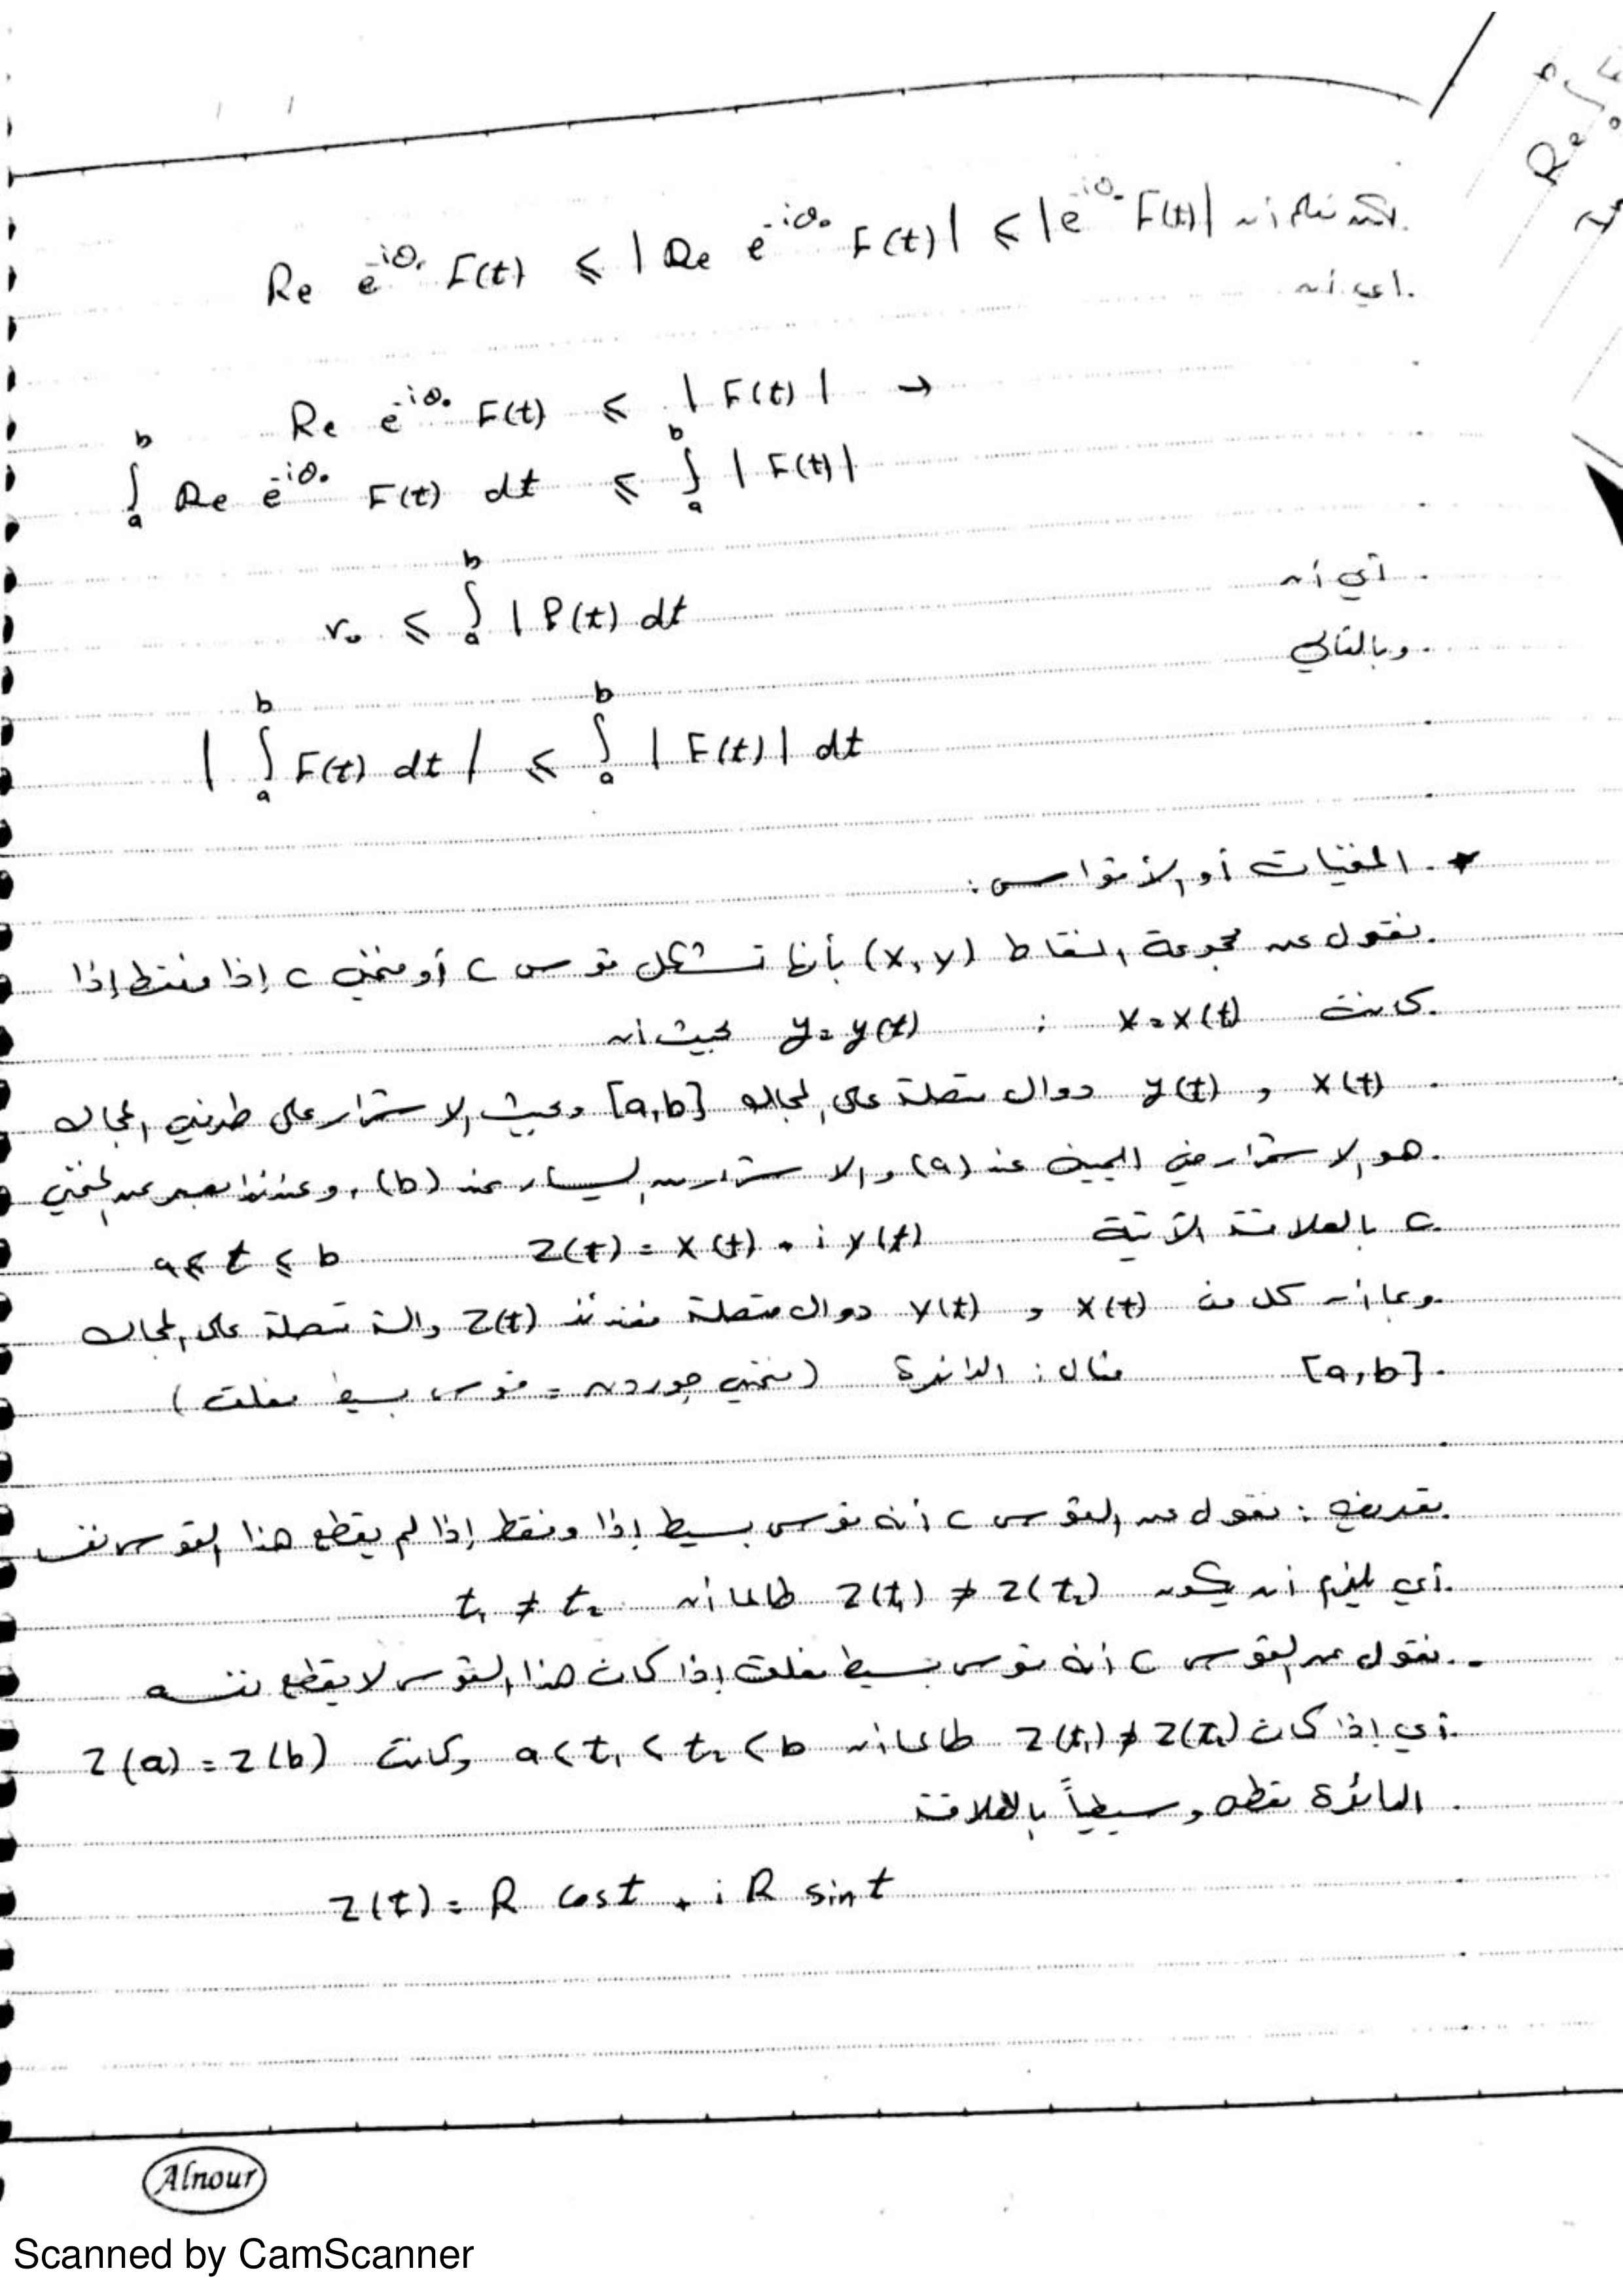 لكن نعلم أن Re e^{-iθ₀} F(t) ≤ | Re e^{-iθ₀} F(t) | ≤ | e^{-iθ₀} F(t) |
أي أن
Re e^{-iθ₀} F(t) ≤ | F(t) | →
∫_a^b Re e^{-iθ₀} F(t) dt ≤ ∫_a^b | F(t) |
أي أن
r₀ ≤ ∫_a^b | P(t) dt
وبالتالي
| ∫_a^b F(t) dt | ≤ ∫_a^b | F(t) | dt
* المنحنيات أو الأقواس :
نقول عن مجموعة النقاط (x, y) بأنها تشكل قوس c أو منحني c إذا وفقط إذا
كانت x = x(t) ; y = y(t) بحيث أن
x(t) و y(t) دوال متصلة على المجال [a,b] وحيث الاستمرار على طرفي المجال
هو الاستمرار من اليمين عند (a) والاستمرار من اليسار عند (b) ، وعندئذ نعبر عن المنحني
c بالعلاقة الآتية z(t) = x(t) + i y(t) a ≤ t ≤ b
وبما أن كل من x(t) و y(t) دوال متصلة فعندئذ z(t) دالة متصلة على المجال
[a,b] مثال : الدائرة (منحني جوردن = قوس بسيط مغلق)
تعريف : نقول عن القوس c أنه قوس بسيط إذا وفقط إذا لم يقطع هذا القوس نفسه
أي يلزم أن يكون z(t₁) ≠ z(t₂) طالما أن t₁ ≠ t₂
- نقول عن القوس c أنه قوس بسيط مغلق إذا كان هذا القوس لا يقطع نفسه
أي إذا كان z(t₁) ≠ z(t₂) طالما أن a < t₁ < t₂ < b وكانت z(a) = z(b)
الدائرة وسيطياً بالعلاقة
z(t) = R cos t + i R sin t
Alnour
Scanned by CamScanner